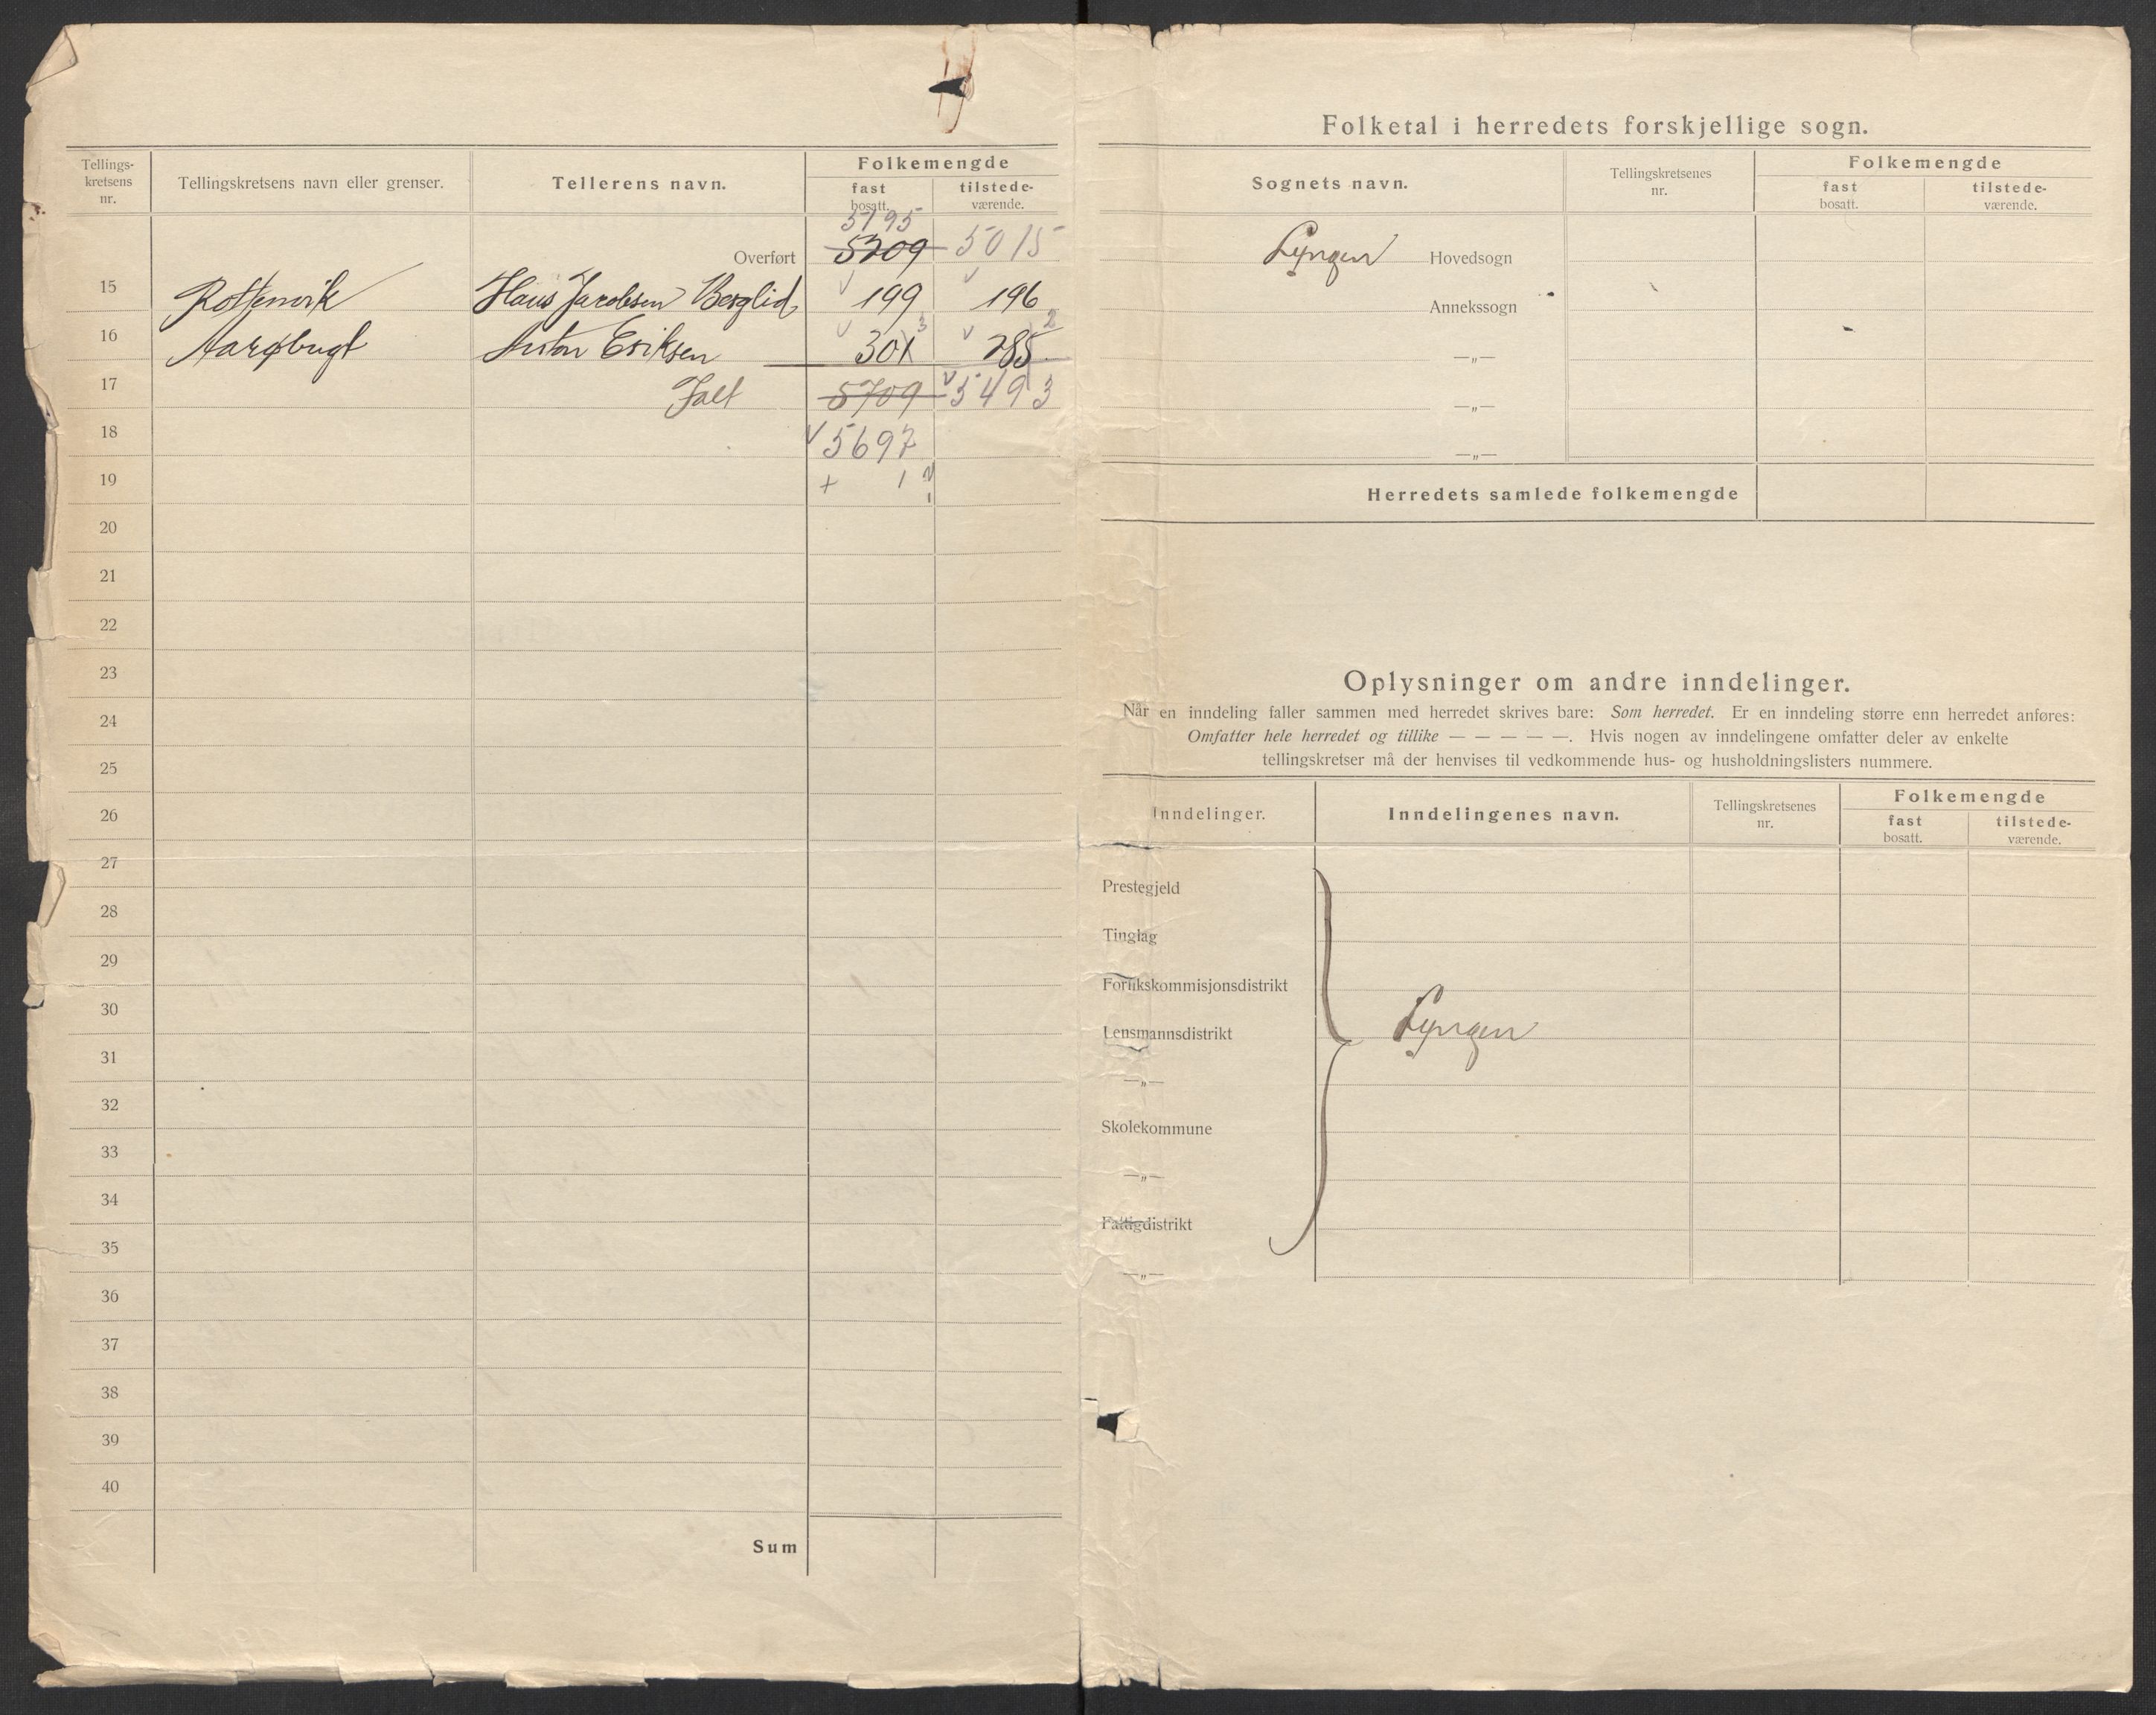 Tellings-
kretsens
nr.
Tellingskretsens navn eller grenser.
Tellerens navn.
Folkemengde
fast
bosatt.
tilstede-
værende.
5195
Overført 5209 5015
15 Rottenvik Hans Jacobsen Berglid 199 196
16 Aarøbugt Anton Eriksen 301 3 285 2
17 Ialt 5709 5493
18 5697
19 + 1
20
21
22
23
24
25
26
27
28
29
30
31
32
33
34
35
36
37
38
39
40
Sum
Folketal i herredets forskjellige sogn.
Sognets navn.
Tellingskretsenes
nr.
Folkemengde
fast
bosatt.
tilstede-
værende.
Lyngen Hovedsogn
Annekssogn
—„—
—„—
—„—
Herredets samlede folkemengde
Oplysninger om andre inndelinger.
Når en inndeling faller sammen med herredet skrives bare: Som herredet. Er en inndeling større enn herredet anføres:
Omfatter hele herredet og tillike — — — — —. Hvis nogen av inndelingene omfatter deler av enkelte
tellingskretser må der henvises til vedkommende hus- og husholdningslisters nummere.
Inndelinger.
Inndelingenes navn.
Tellingskretsenes
nr.
Folkemengde
fast
bosatt.
tilstede-
værende.
Prestegjeld
Tinglag
Forlikskommisjonsdistrikt
Lensmannsdistrikt Lyngen
—„—
Skolekommune
—„—
Fattigdistrikt
—„—